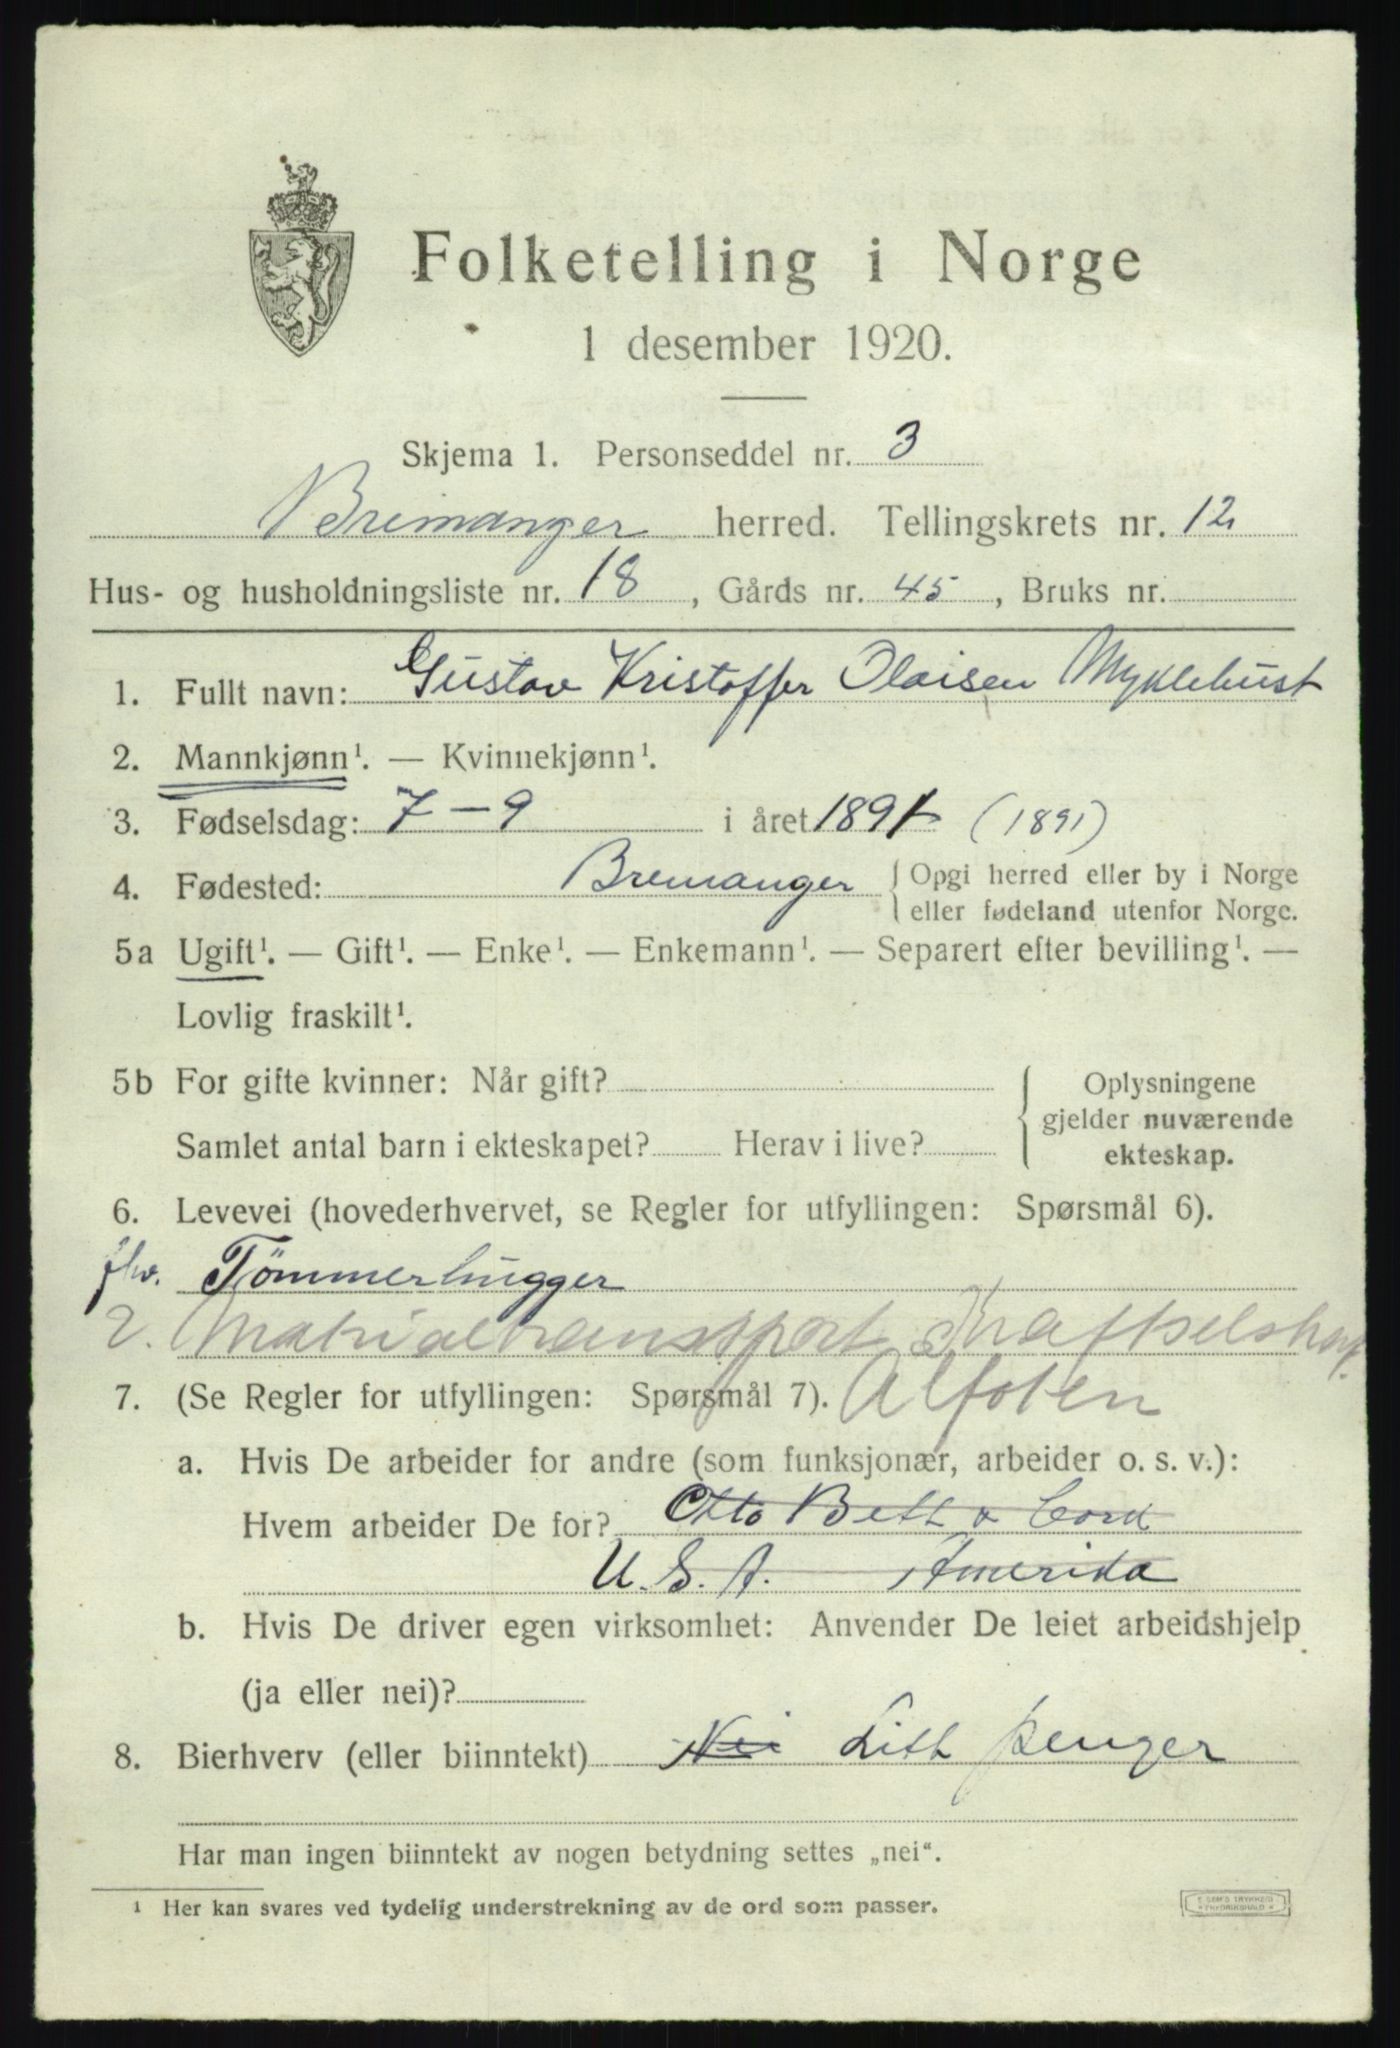 Folketelling i Norge
1 desember 1920.
Skjema 1. Personseddel nr. 3
Bremanger herred. Tellingskrets nr. 12
Hus- og husholdningsliste nr. 18, Gårds nr. 45, Bruks nr.
1. Fullt navn: Gustav Kristoffer Olaisen Myklebust
2. Mannkjønn¹. — Kvinnekjønn¹.
3. Fødselsdag: 7 – 9 i året 1891 (1891)
4. Fødested: Bremanger { Opgi herred eller by i Norge
eller fødeland utenfor Norge.
5a Ugift¹. — Gift¹. — Enke¹. — Enkemann¹. — Separert efter bevilling¹. —
Lovlig fraskilt¹.
5b For gifte kvinner: Når gift? { Oplysningene
gjelder nuværende
Samlet antal barn i ekteskapet? Herav i live? ekteskap.
6. Levevei (hovederhvervet, se Regler for utfyllingen: Spørsmål 6).
fhv. Tømmerhugger
2. Matrialtransport Kraftselskap
7. (Se Regler for utfyllingen: Spørsmål 7). Alfoten
a. Hvis De arbeider for andre (som funksjonær, arbeider o. s. v.):
Hvem arbeider De for? Otto Bett &
U. S. A. Amerika
b. Hvis De driver egen virksomhet: Anvender De leiet arbeidshjelp
(ja eller nei)?
8. Bierhverv (eller biinntekt) Nei Litt penger
Har man ingen biinntekt av nogen betydning settes „nei“.
¹ Her kan svares ved tydelig understrekning av de ord som passer.